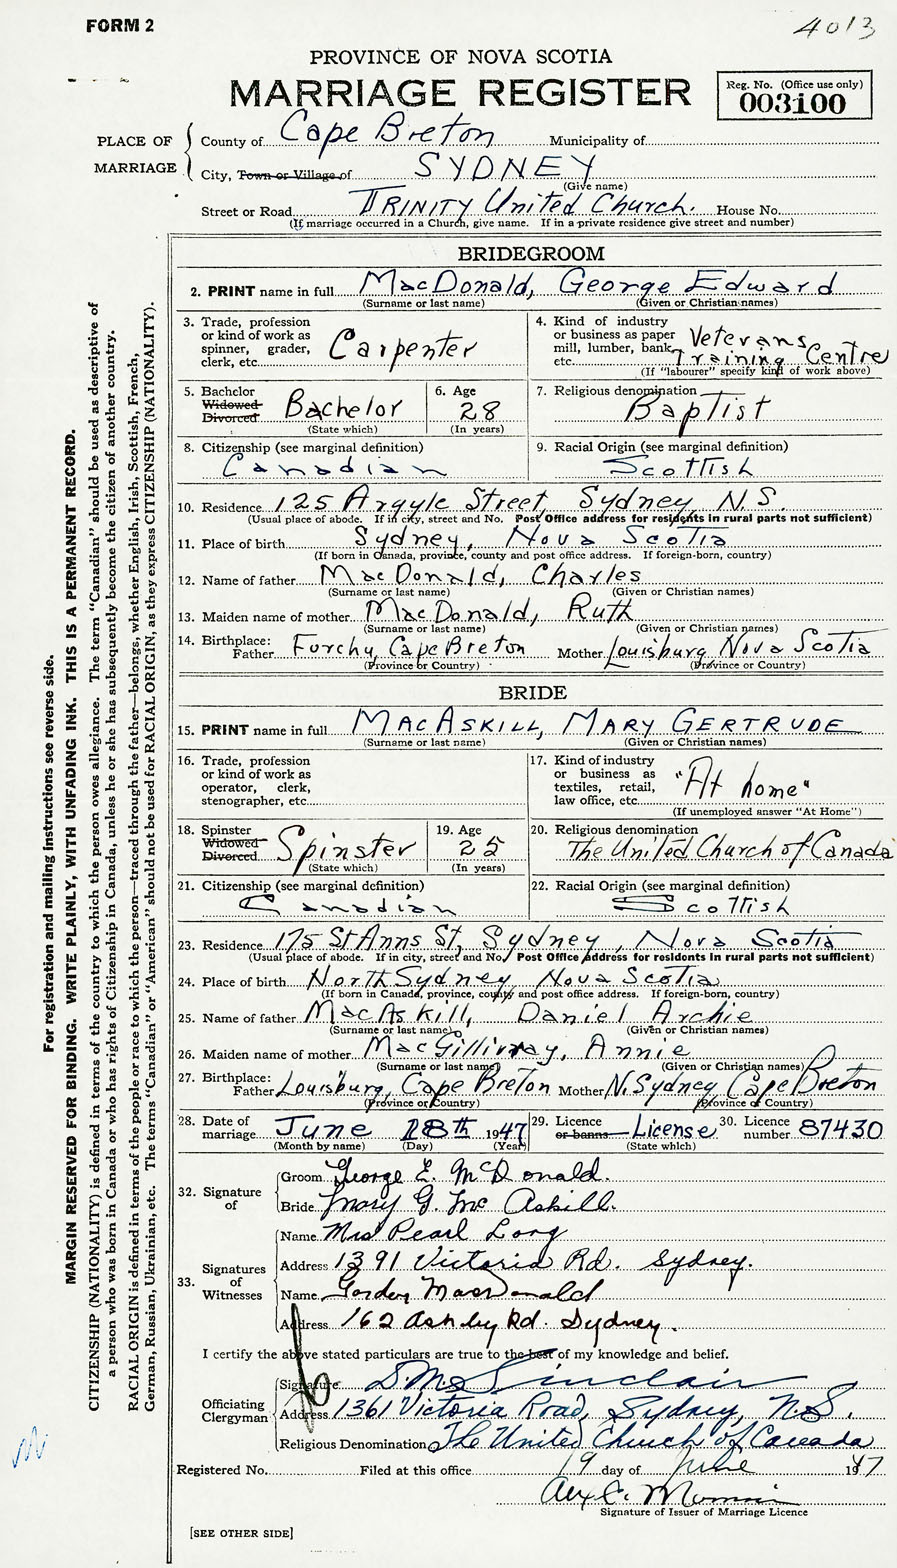 FORM 2
4013
PROVINCE OF NOVA SCOTIA
MARRIAGE REGISTER
Reg. No. (Office use only)
003100
PLACE OF MARRIAGE
County of Cape Breton Municipality of
City, Town or Village of SYDNEY
(Give name)
Street or Road TRINITY United Church. House No.
(If marriage occurred in a Church, give name. If in a private residence give street and number)
BRIDEGROOM
2. PRINT name in full MacDonald, George Edward
(Surname or last name) (Given or Christian names)
3. Trade, profession or kind of work as spinner, grader, clerk, etc. Carpenter
4. Kind of industry or business as paper mill, lumber, bank, etc. Veterans Training Centre
(If "labourer" specify kind of work above)
5. Bachelor Widowed Divorced Bachelor
(State which)
6. Age 28
(In years)
7. Religious denomination
Baptist
8. Citizenship (see marginal definition)
Canadian
9. Racial Origin (see marginal definition)
Scottish
10. Residence 125 Argyle Street, Sydney, N.S.
(Usual place of abode. If in city, street and No. Post Office address for residents in rural parts not sufficient)
11. Place of birth Sydney, Nova Scotia
(If born in Canada, province, county and post office address. If foreign-born, country)
12. Name of father MacDonald, Charles
(Surname or last name) (Given or Christian names)
13. Maiden name of mother MacDonald, Ruth
(Surname or last name) (Given or Christian names)
14. Birthplace: Father Furchy, Cape Breton Mother Louisburg Nova Scotia
(Province or Country) (Province or Country)
BRIDE
15. PRINT name in full MACASKILL, MARY GERTRUDE
(Surname or last name) (Given or Christian names)
16. Trade, profession or kind of work as operator, clerk, stenographer, etc.
17. Kind of industry or business as textiles, retail, law office, etc. "At home"
(If unemployed answer "At Home")
18. Spinster Widowed Divorced Spinster
(State which)
19. Age 25
(In years)
20. Religious denomination
The United Church of Canada
21. Citizenship (see marginal definition)
Canadian
22. Racial Origin (see marginal definition)
Scottish
23. Residence 175 St Anns St, Sydney, Nova Scotia
(Usual place of abode. If in city, street and No. Post Office address for residents in rural parts not sufficient)
24. Place of birth North Sydney Nova Scotia
(If born in Canada, province, county and post office address. If foreign-born, country)
25. Name of father MacAskill, Daniel Archie
(Surname or last name) (Given or Christian names)
26. Maiden name of mother MacGillivray, Annie
(Surname or last name) (Given or Christian names)
27. Birthplace: Father Louisburg, Cape Breton Mother N. Sydney Cape Breton
(Province or Country) (Province or Country)
28. Date of marriage June 18th 1947
(Month by name) (Day) (Year)
29. Licence or banns License
(State which)
30. Licence number 87430
32. Signature of
Groom George E. McDonald.
Bride Mary G. McAskill.
33. Signatures of Witnesses
Name Mrs Pearl Long
Address 1391 Victoria Rd. Sydney.
Name Gordon MacDonald
Address 162 Ashby Rd. Sydney.
I certify the above stated particulars are true to the best of my knowledge and belief.
Officiating Clergyman
Signature Sinclair
Address 1361 Victoria Road, Sydney, N.S.
Religious Denomination The United Church of Canada
Registered No. Filed at this office 19 day of June 1947
Signature of Issuer of Marriage Licence
[SEE OTHER SIDE]
For registration and mailing instructions see reverse side.
MARGIN RESERVED FOR BINDING. WRITE PLAINLY, WITH UNFADING INK. THIS IS A PERMANENT RECORD.
CITIZENSHIP (NATIONALITY) is defined in terms of the country to which the person owes allegiance. The term "Canadian" should be used as descriptive of
a person who was born in Canada or who has rights of Citizenship in Canada, unless he or she has subsequently become the citizen of another country.
RACIAL ORIGIN is defined in terms of the people or race to which the person—traced through the father—belongs, whether English, Irish, Scottish, French,
German, Russian, Ukrainian, etc. The terms "Canadian" or "American" should not be used for RACIAL ORIGIN, as they express CITIZENSHIP (NATIONALITY).